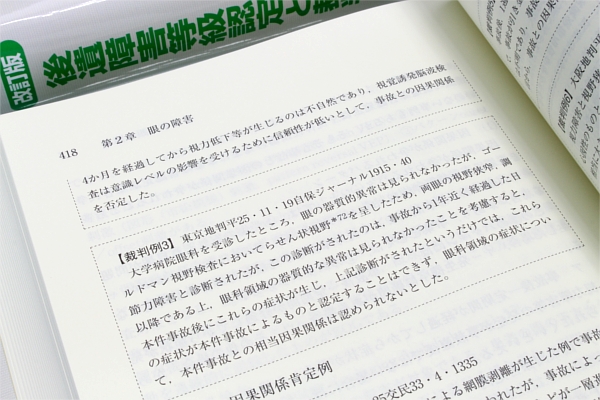 改訂版
後遺障害等級認定と裁
418 第2章 眼の障害
4か月を経過してから視力低下等が生じるのは不自然であり，視覚誘発脳波検
査は意識レベルの影響を受けるために信頼性が低いとして，事故との因果関係
を否定した。
【裁判例3】東京地判平25・11・19自保ジャーナル1915・40
大学病院眼科を受診したところ，眼の器質的異常は見られなかったが，ゴー
ルドマン視野検査においてらせん状視野*72を呈したため，両眼の視野狭窄，調
節力障害と診断されたが，この診断がされたのは，事故から1年近く経過した日
以降である上，眼科領域の器質的な異常は見られなかったことを考慮すると，
本件事故後にこれらの症状が生じ，上記診断がされたというだけでは，これら
の症状が本件事故によるものと認定することはできず，眼科領域の症状につい
て，本件事故との相当因果関係は認められないとした。
因果関係肯定例
25交民33・4・1335
による網膜剥離が生じた例で事
われたが，事故によっ
どが一般
大阪地判平